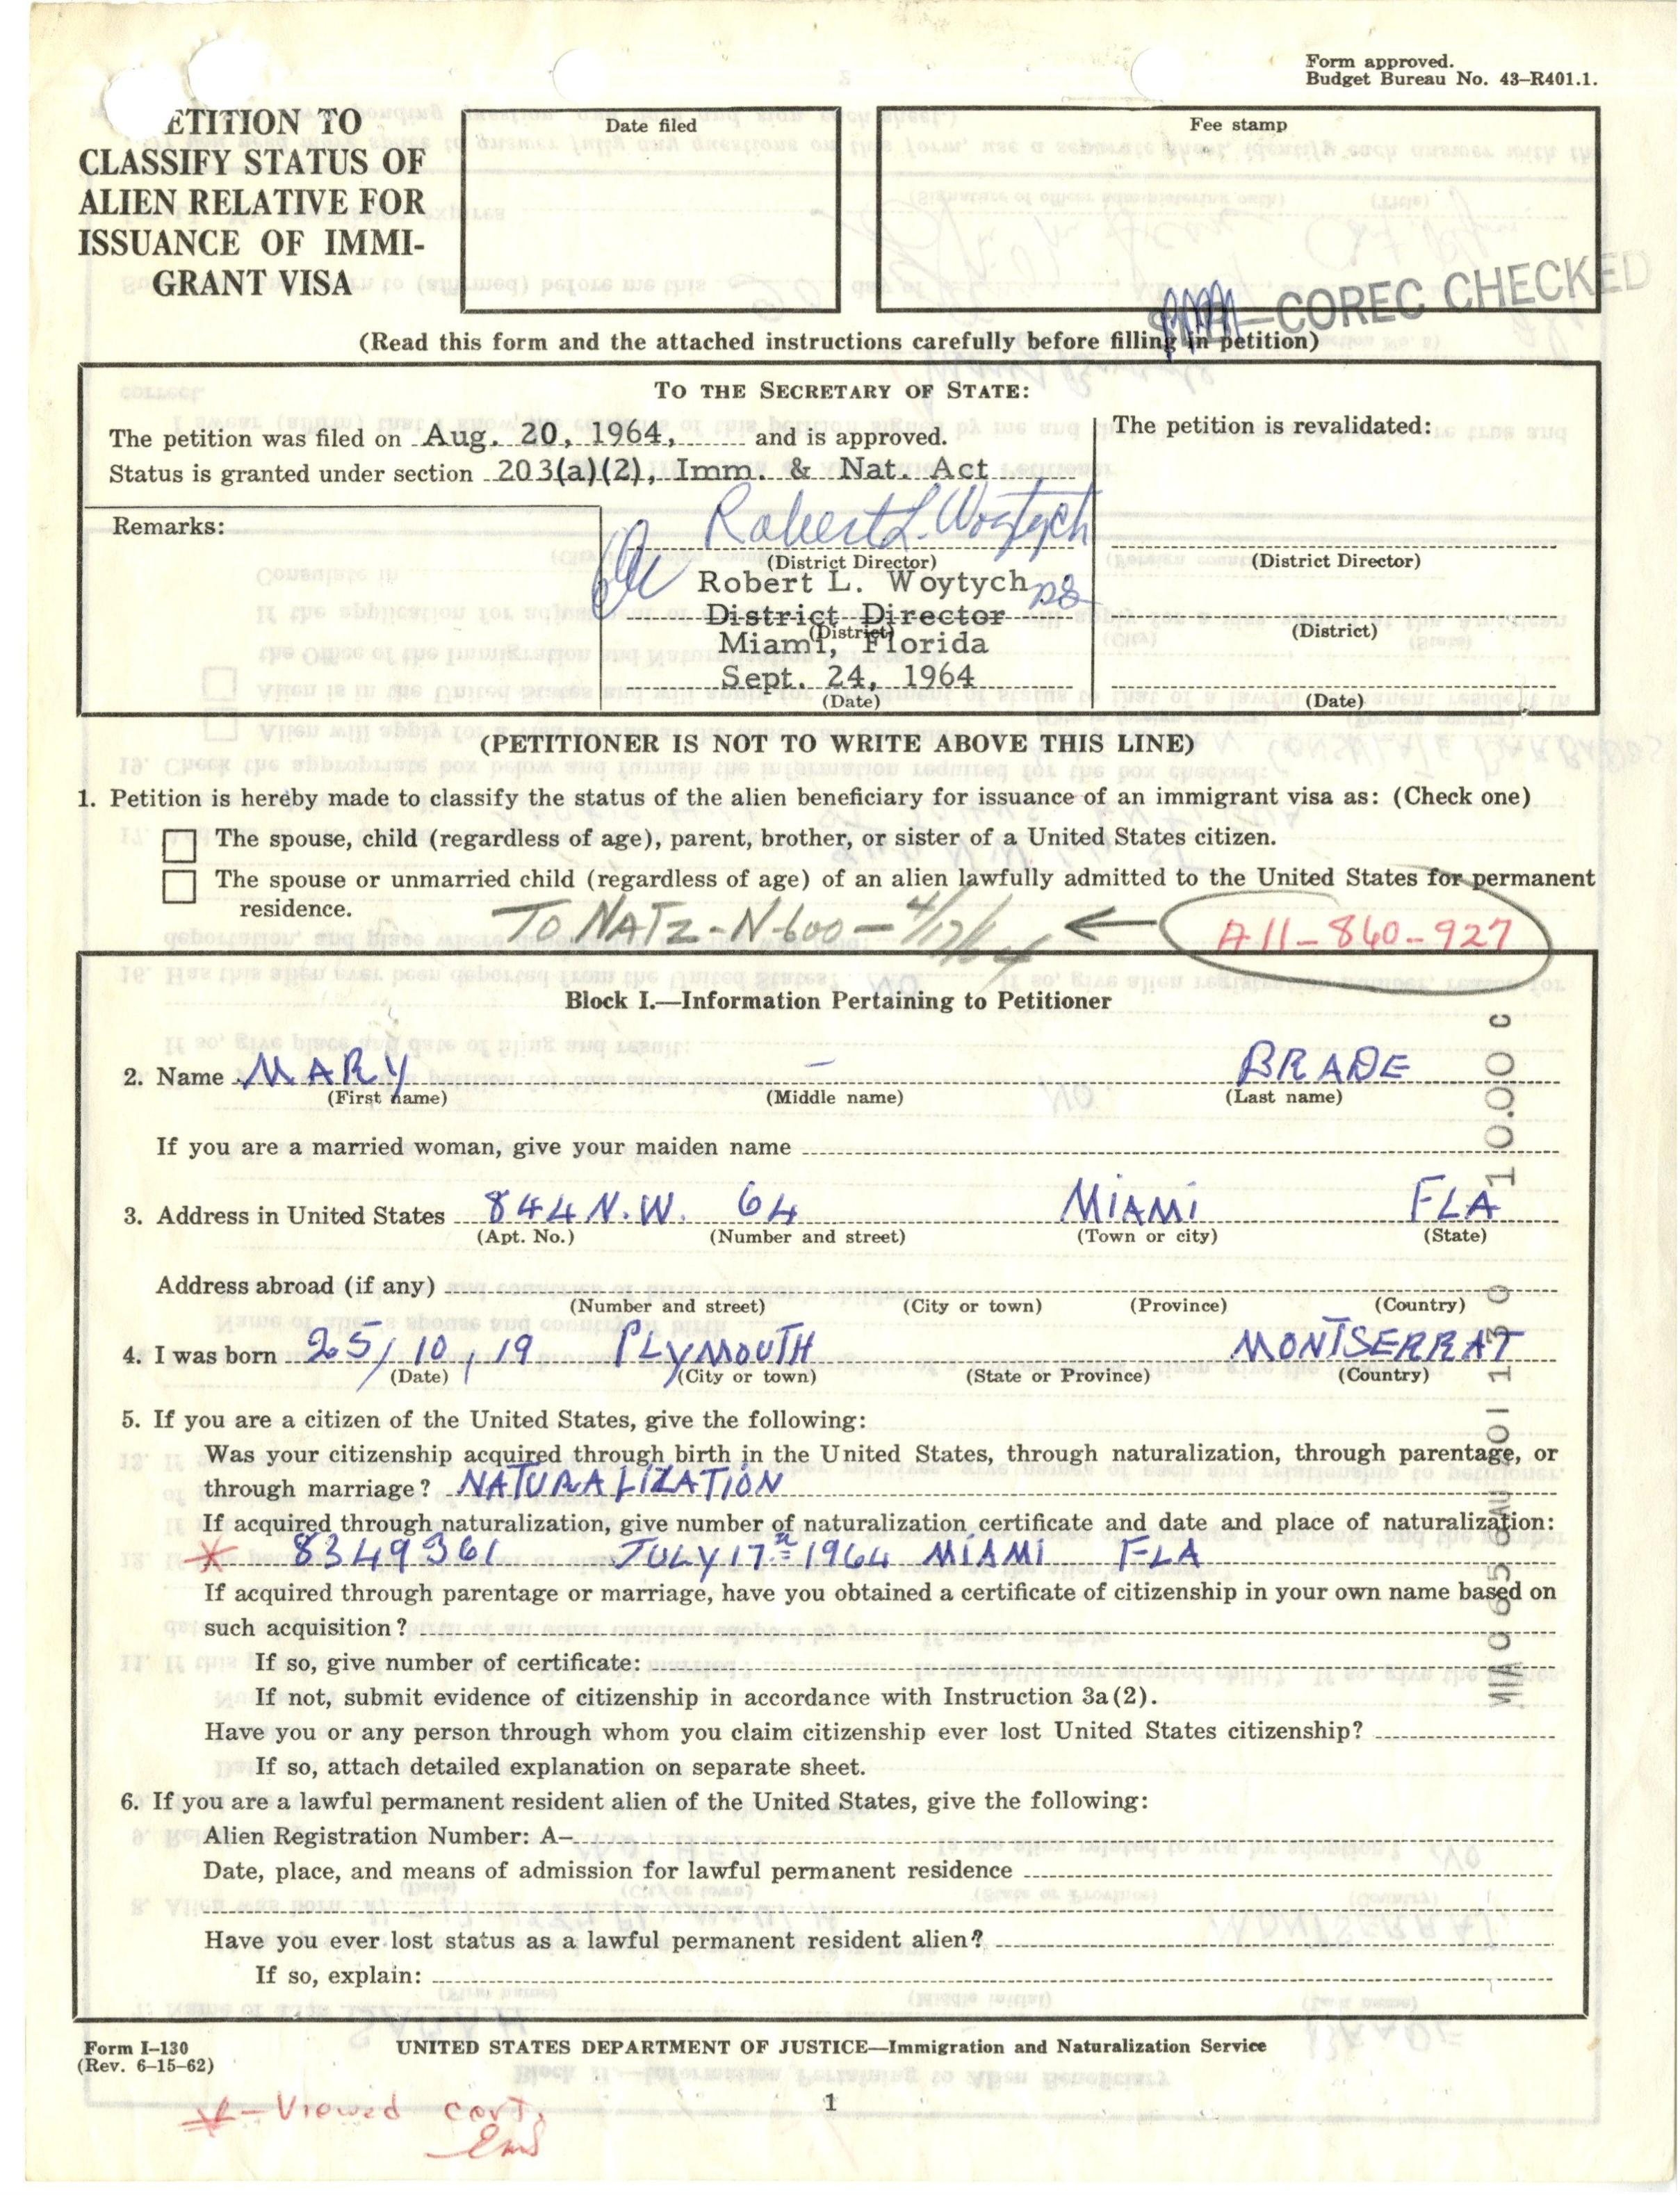 Form approved.
Budget Bureau No. 43-R401.1.
ETITION TO
CLASSIFY STATUS OF
ALIEN RELATIVE FOR
ISSUANCE OF IMMI-
GRANT VISA
Date filed
Fee stamp
COREC CHECKED
(Read this form and the attached instructions carefully before filling in petition)
TO THE SECRETARY OF STATE:
The petition was filed on Aug. 20, 1964, and is approved.
Status is granted under section 203(a)(2), Imm. & Nat. Act
The petition is revalidated:
Remarks:
Robert L. Woytych
(District Director)
Robert L. Woytych
District Director
(District)
Miami, Florida
Sept. 24, 1964
(Date)
(District Director)
(District)
(Date)
(PETITIONER IS NOT TO WRITE ABOVE THIS LINE)
1. Petition is hereby made to classify the status of the alien beneficiary for issuance of an immigrant visa as: (Check one)
The spouse, child (regardless of age), parent, brother, or sister of a United States citizen.
The spouse or unmarried child (regardless of age) of an alien lawfully admitted to the United States for permanent
residence.
TO NATZ-N-600-4/17/64 ← A11-860-927
Block I.—Information Pertaining to Petitioner
2. Name MARY - BRADE
(First name) (Middle name) (Last name)
If you are a married woman, give your maiden name
3. Address in United States 844 N.W. 64 MIAMI FLA
(Apt. No.) (Number and street) (Town or city) (State)
Address abroad (if any)
(Number and street) (City or town) (Province) (Country)
4. I was born 25/10, 19 PLYMOUTH MONTSERRAT
(Date) (City or town) (State or Province) (Country)
5. If you are a citizen of the United States, give the following:
Was your citizenship acquired through birth in the United States, through naturalization, through parentage, or
through marriage? NATURALIZATION
If acquired through naturalization, give number of naturalization certificate and date and place of naturalization:
* 8349361 JULY 17th 1964 MIAMI FLA
If acquired through parentage or marriage, have you obtained a certificate of citizenship in your own name based on
such acquisition?
If so, give number of certificate:
If not, submit evidence of citizenship in accordance with Instruction 3a(2).
Have you or any person through whom you claim citizenship ever lost United States citizenship?
If so, attach detailed explanation on separate sheet.
6. If you are a lawful permanent resident alien of the United States, give the following:
Alien Registration Number: A-
Date, place, and means of admission for lawful permanent residence
Have you ever lost status as a lawful permanent resident alien?
If so, explain:
10.00 C
Form I-130
(Rev. 6-15-62)
UNITED STATES DEPARTMENT OF JUSTICE—Immigration and Naturalization Service
1
*-Viewed cert.